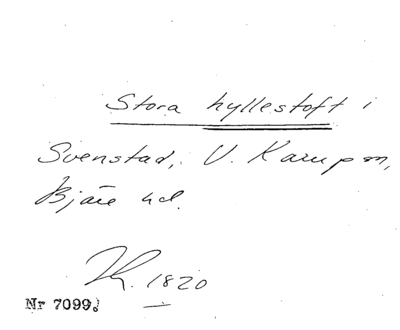 Stora hyllestoft i
Svenstad, V. Karup sn,
Bjäre hd.
K. 1820
Nr 7099.